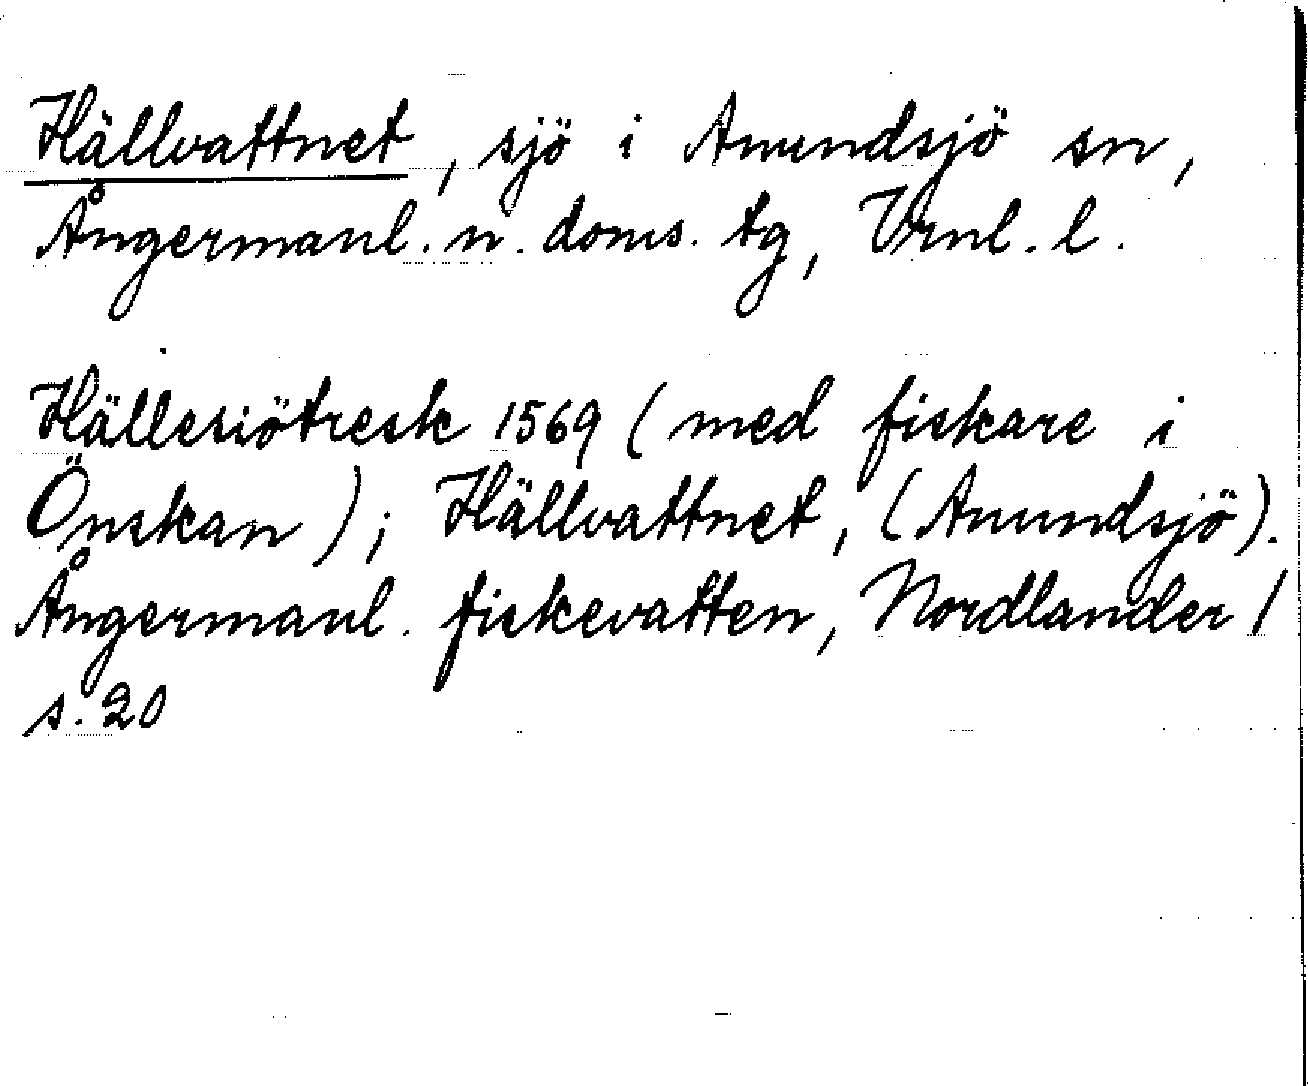 Hällvattnet, sjö i Anundsjö sn,
Ångermanl. n. doms. tg, Vrnl. l.
Hällesiötresk 1569 (med fiskare i
Önskan); Hällvattnet, (Anundsjö).
Ångermanl. fiskevatten, Nordlander 1
s. 20